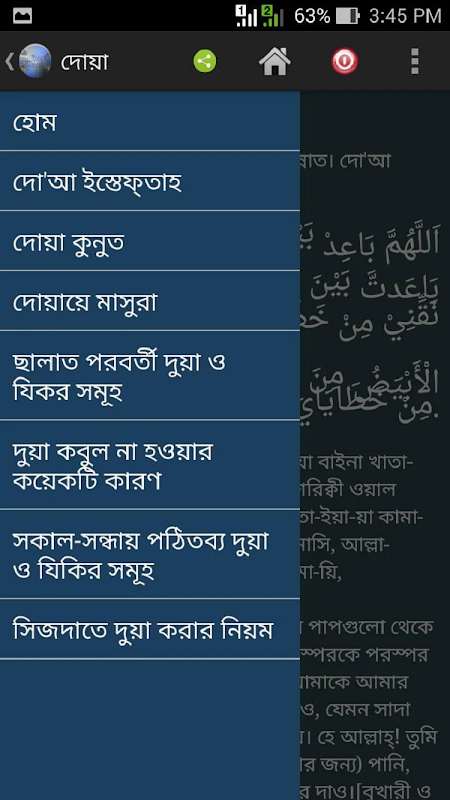 1 2 63% 3:45 PM
দোয়া
হোম
দো'আ ইস্তেফ্তাহ
দোয়া কুনুত
দোয়ায়ে মাসুরা
ছালাত পরবর্তী দুয়া ও
যিকর সমূহ
দুয়া কবুল না হওয়ার
কয়েকটি কারণ
সকাল-সন্ধায় পঠিতব্য দুয়া
ও যিকির সমূহ
সিজদাতে দুয়া করার নিয়ম
দো'আ
اَللَّهُمَّ بَاعِدْ
بَاعَدتَّ بَيْنَ
نَقِّنِيْ مِنْ
الْأَبْيَضُ مِنَ
مِنْ خَطَايَايَ
বাইনা খাতা-
ওয়াল
কামা-
আল্লা-
পাপগুলো থেকে
পরস্পর
আমার
যেমন সাদা
হে আল্লাহ্! তুমি
জন্য) পানি,
দাও।[বুখারী ও